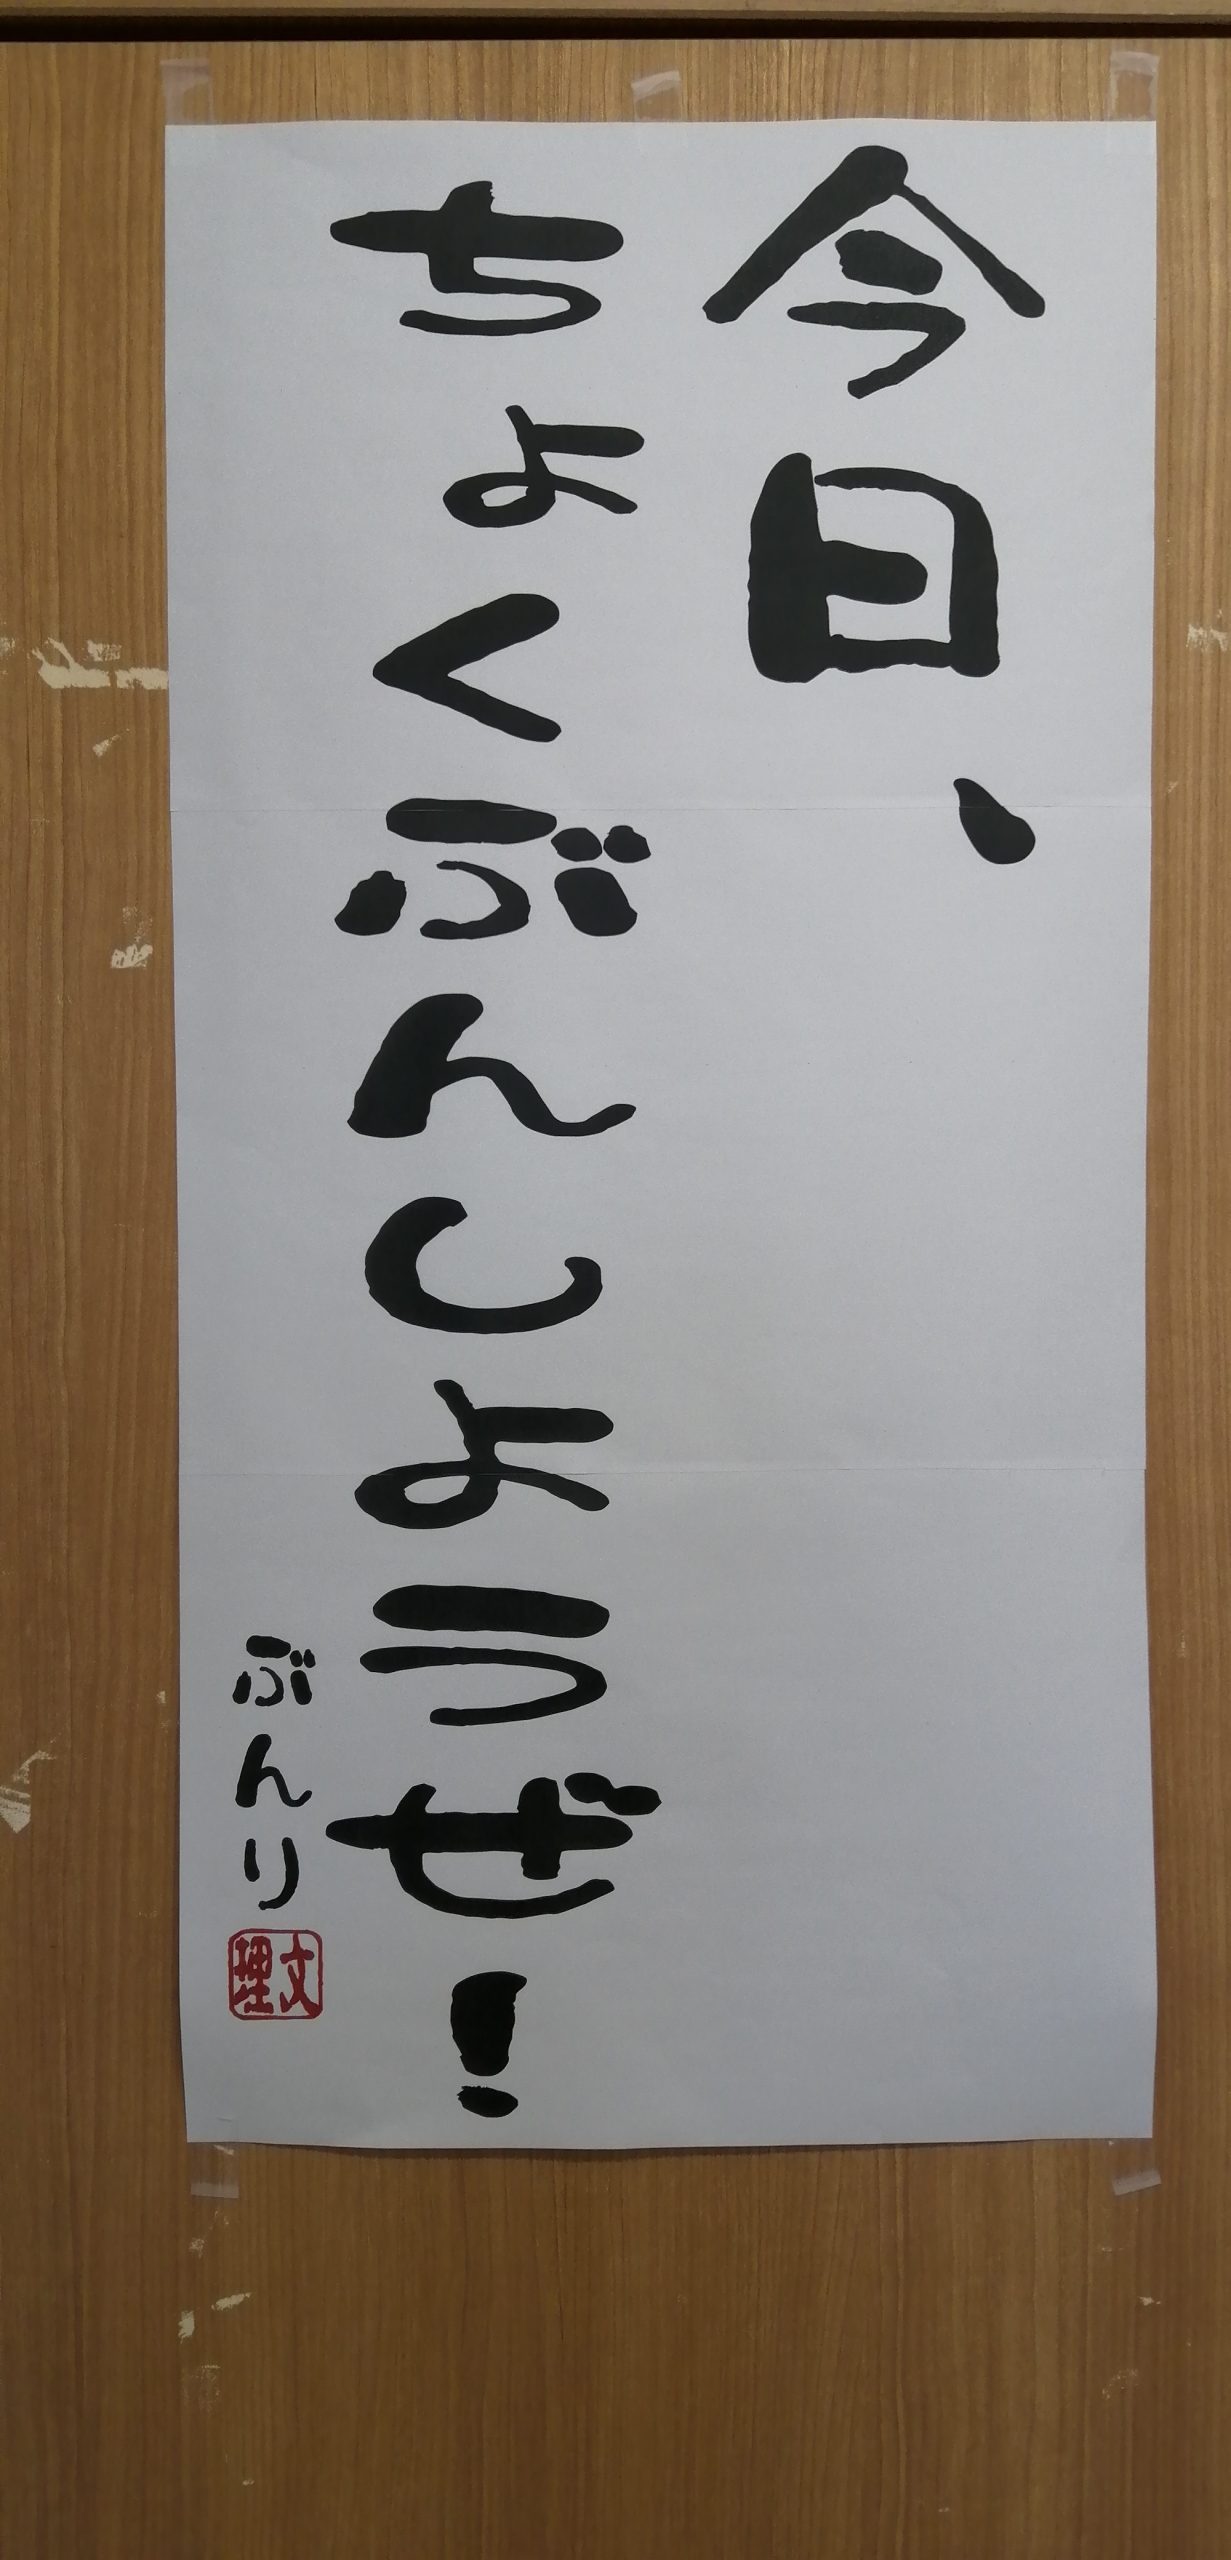 今日、
ちょくぶんしようぜ!
ぶんり
文理